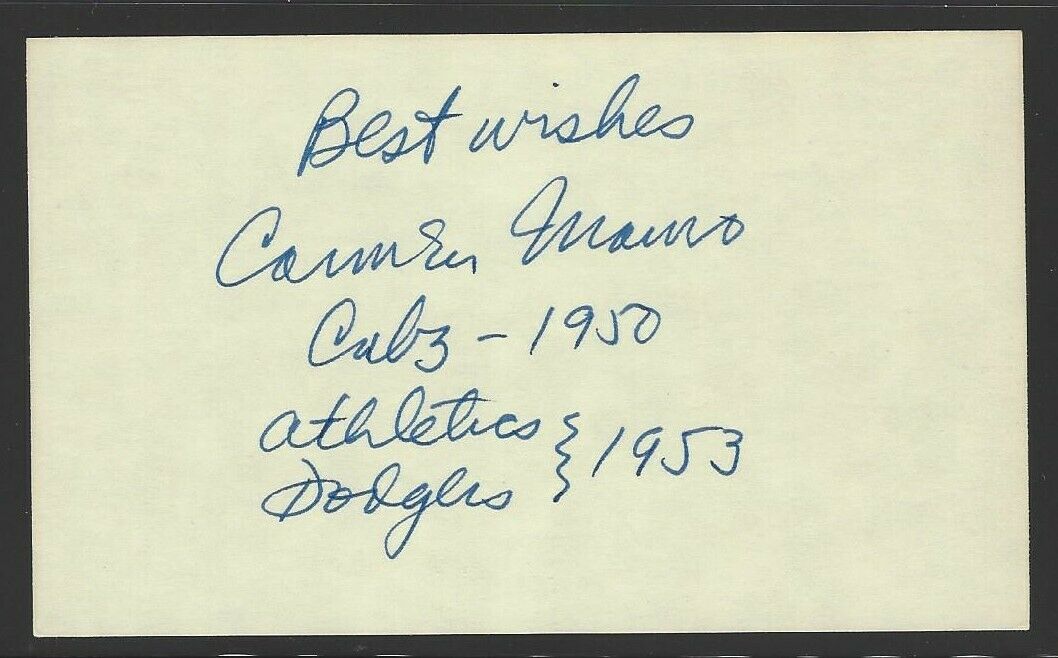 Best wishes
Carmen Mauro
Cubs - 1950
Athletics
Dodgers } 1953